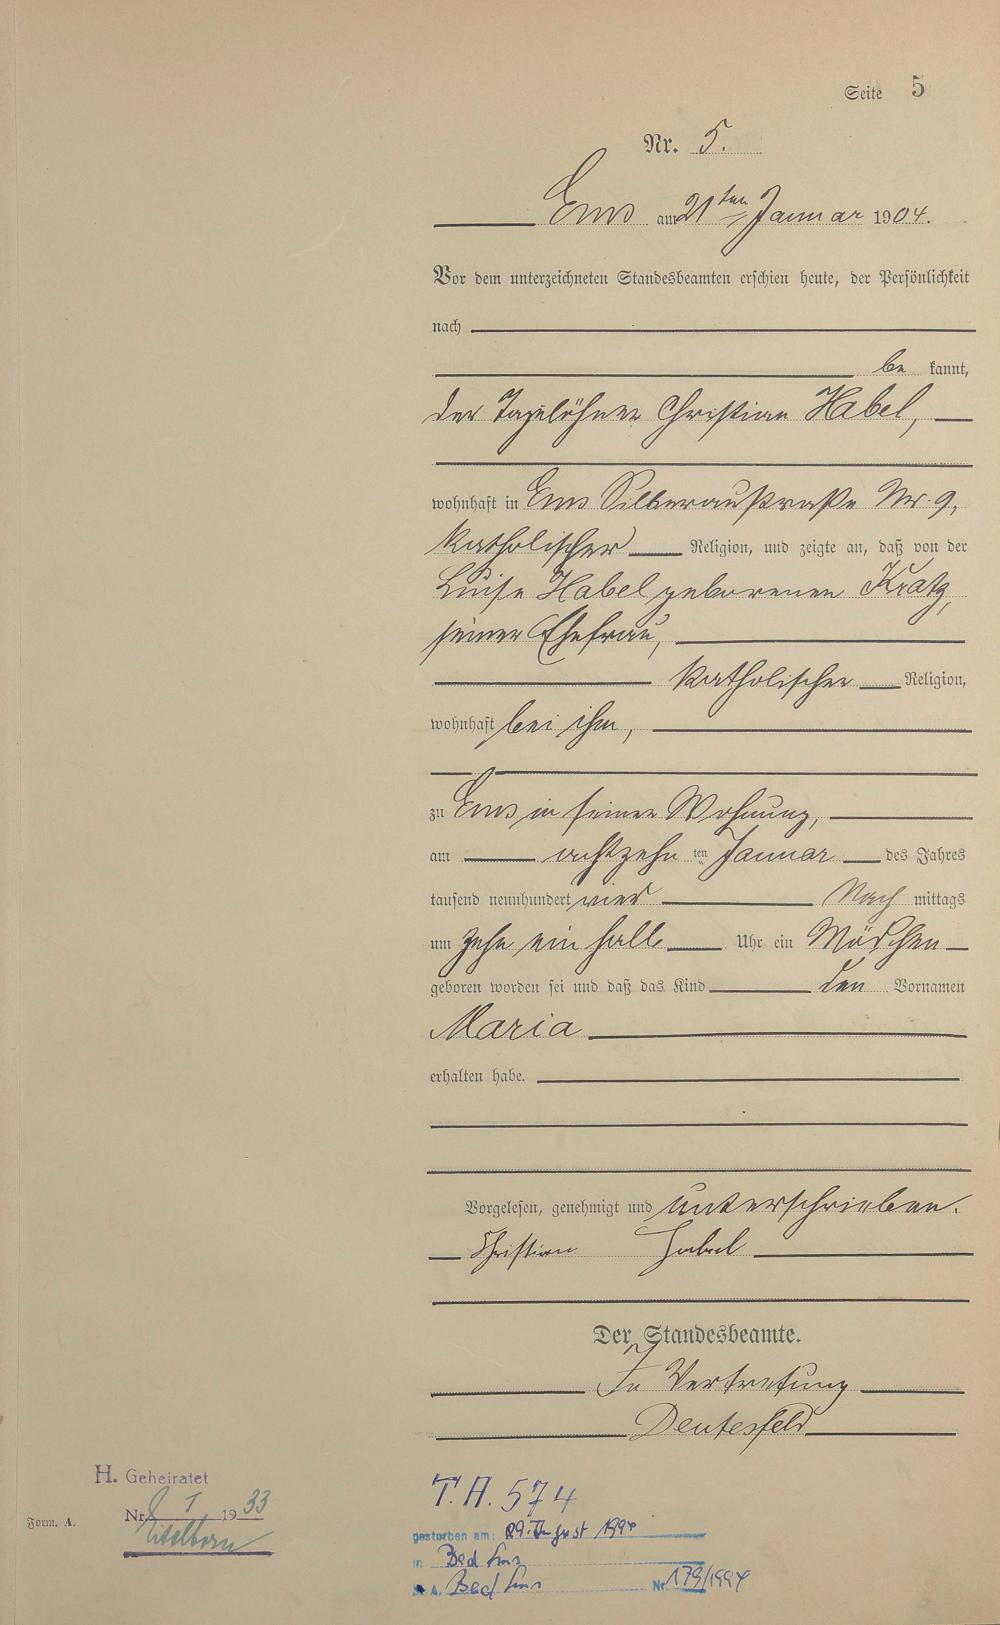 Seite 5
Nr. 5.
Ems am 21ten Januar 1904.
Vor dem unterzeichneten Standesbeamten erschien heute, der Persönlichkeit
nach
be kannt,
der Tagelöhner Christian Habel,
wohnhaft in Ems Silberaustraße Nr. 9,
katholischer Religion, und zeigte an, daß von der
Luise Habel geborenen Kratz,
seiner Ehefrau,
katholischer Religion,
wohnhaft bei ihm,
zu Ems in seiner Wohnung,
am achtzehn ten Januar des Jahres
tausend neunhundert vier Nach mittags
um zehn ein halb Uhr ein Mädchen
geboren worden sei und daß das Kind den Vornamen
Maria
erhalten habe.
Vorgelesen, genehmigt und unterschrieben.
Christian Habel
Der Standesbeamte.
In Vertretung
Deutesfeld
H. Geheiratet
Nr 1933
Eitelborn
Form. A.
T.A. 574
gestorben am: 29. August 1994
in Bad Ems
S. A. Bad Ems Nr 179/1994